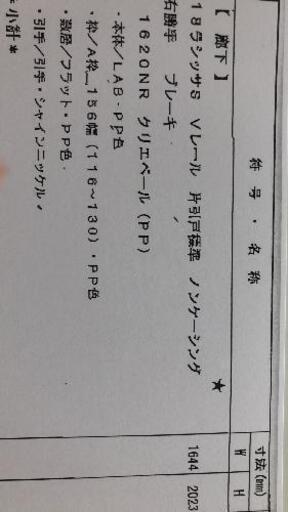 符号・名称
寸法(mm)
W H
【 廊下 】
18ラシッサS Vレール 片引戸標準 ノンケーシング ★
1644 2023
右勝手 ブレーキ
1620NR クリエペール(PP)
・本体/LAB・PP色
・枠/A枠_156幅(116~130)・PP色
・敷居/フラット・PP色
・引手/引手・シャインニッケル
*小計*